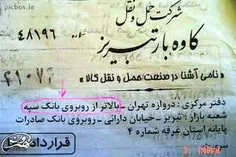 picbox.ir
شرکت حمل و نقل
۴۸۱۹۶
کاوه بار تبریز
۴۱۰۷۲
« نامی آشنا در صنعت حمل و نقل کالا »
دفتر مرکزی : دروازه تهران - بالاتر از روبروی بانک سپه
شعبه بازار : تبریز - خیابان دارائی - روبروی بانک صادرات
پایانه استان غرفه شماره ۴
قرارداد